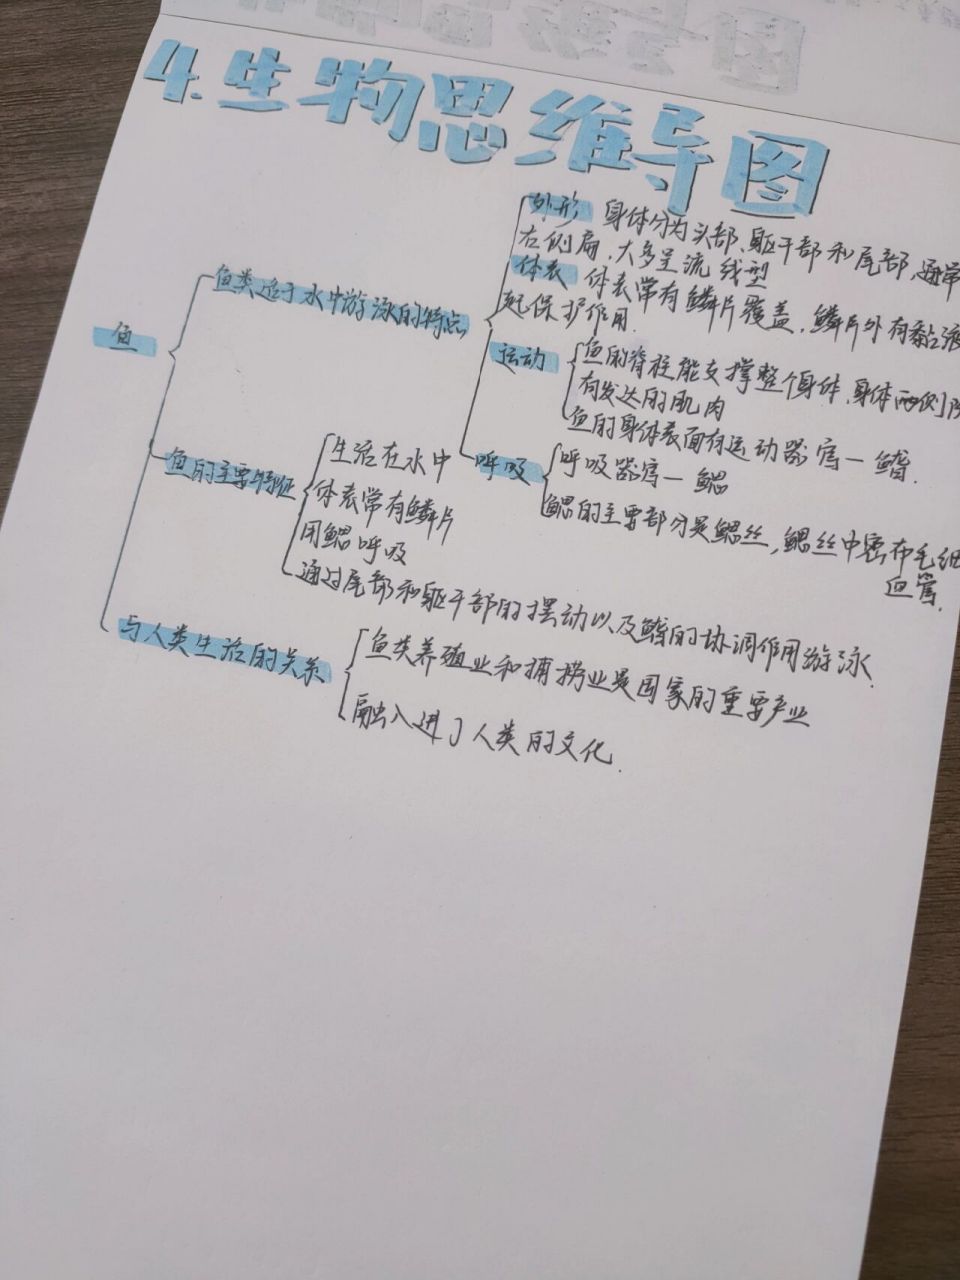 4.生物思维导图
外形 身体分为头部、躯干部和尾部,通常
右侧扁,大多呈流线型
体表 体表常有鳞片覆盖,鳞片外有黏液
起保护作用.
鱼类适于水中游泳的特点
鱼
运动 鱼的脊柱能支撑整个身体,身体两侧
有发达的肌肉
鱼的身体表面有运动器官—鳍.
呼吸 呼吸器官—鳃
鳃的主要部分是鳃丝,鳃丝中密布毛细
血管.
鱼的主要特征
生活在水中
体表常有鳞片
用鳃呼吸
通过尾部和躯干部的摆动以及鳍的协调作用游泳.
与人类生活的关系
鱼类养殖业和捕捞业是国家的重要产业
融入进了人类的文化.